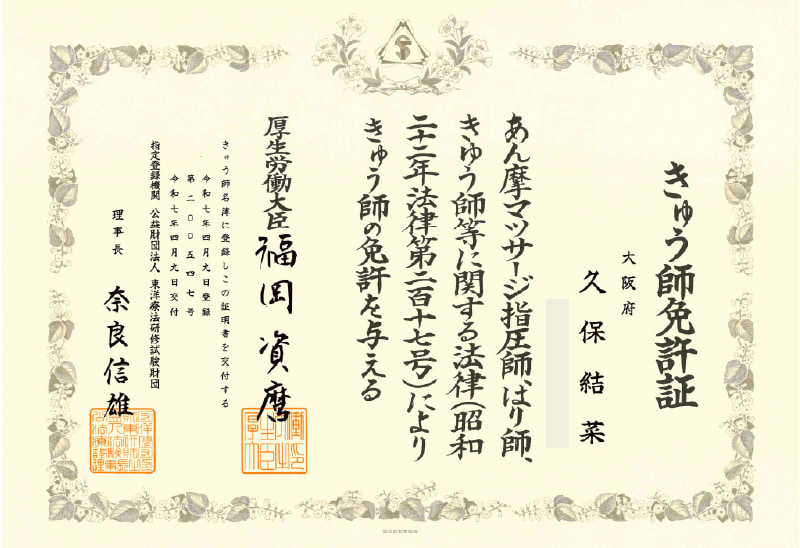 きゅう師免許証
大阪府
久保結菜
あん摩マッサージ指圧師、はり師、
きゆう師等に関する法律(昭和
二十二年法律第二百十七号)により
きゅう師の免許を与える
厚生労働大臣 福岡資麿
きゅう師名簿に登録しこの証明書を交付する
令和七年四月九日登録
第二〇〇五四七号
令和七年四月九日交付
指定登録機関 公益財団法人 東洋療法研修試験財団
理事長 奈良信雄